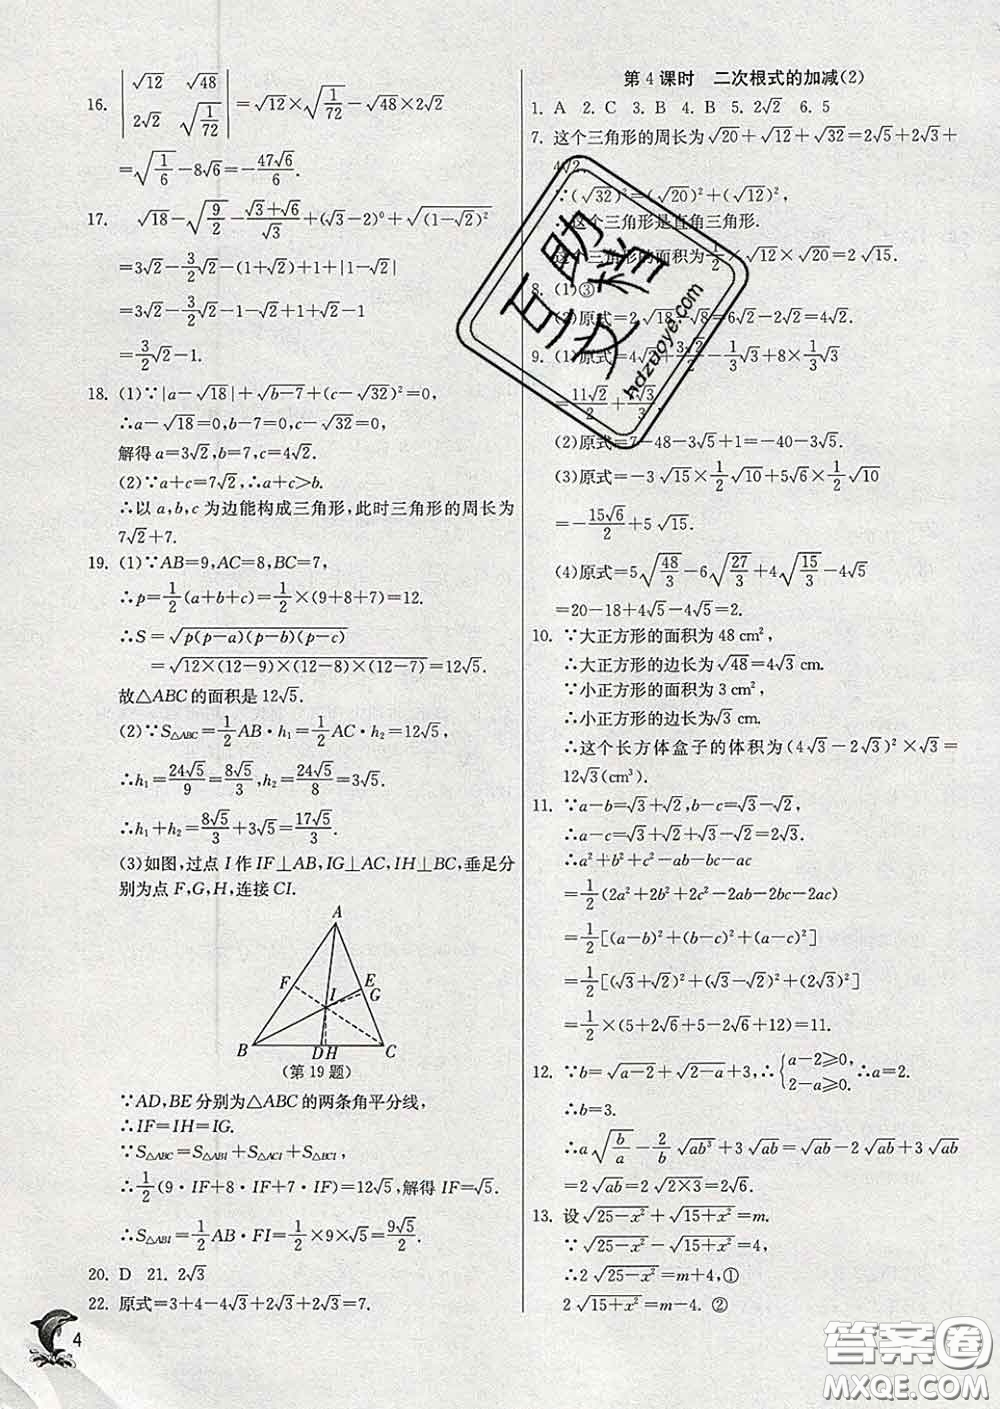 16. |√12 √48; 2√2 √(1/72)| =√12×√(1/72)-√48×2√2
=√(1/6)-8√6=-47√6/6.
17. √18-√(9/2)-(√3+√6)/√3+(√3-2)⁰+√((1-√2)²)
=3√2-(3/2)√2-(1+√2)+1+|1-√2|
=3√2-(3/2)√2-1-√2+1+√2-1
=(3/2)√2-1.
18. (1)∵|a-√18|+√(b-7)+(c-√32)²=0,
∴a-√18=0,b-7=0,c-√32=0,
解得a=3√2,b=7,c=4√2.
(2)∵a+c=7√2,∴a+c>b.
∴以a,b,c为边能构成三角形,此时三角形的周长为
7√2+7.
19. (1)∵AB=9,AC=8,BC=7,
∴p=1/2(a+b+c)=1/2×(9+8+7)=12.
∴S=√(p(p-a)(p-b)(p-c))
=√(12×(12-9)×(12-8)×(12-7))=12√5.
故△ABC的面积是12√5.
(2)∵S△ABC=1/2AB·h₁=1/2AC·h₂=12√5,
∴h₁=24√5/9=8√5/3,h₂=24√5/8=3√5.
∴h₁+h₂=8√5/3+3√5=17√5/3.
(3)如图,过点I作IF⊥AB,IG⊥AC,IH⊥BC,垂足分
别为点F,G,H,连接CI.
A
F
E
I
G
B
D
H
C
(第19题)
∵AD,BE分别为△ABC的两条角平分线,
∴IF=IH=IG.
∵S△ABC=S△ABI+S△ACI+S△BCI,
∴1/2(9·IF+8·IF+7·IF)=12√5,解得IF=√5.
∴S△ABI=1/2AB·FI=1/2×9×√5=9√5/2.
20. D 21. 2√3
22. 原式=3+4-4√3+2√3+2√3=7.
4
第4课时 二次根式的加减(2)
1. A 2. C 3. B 4. B 5. 2√2 6. 5
7. 这个三角形的周长为√20+√12+√32=2√5+2√3+
4√2.
∵(√32)²=(√20)²+(√12)²,
这个三角形是直角三角形.
这个三角形的面积为1/2×√12×√20=2√15.
8. (1)③
(2)原式=2√18-√8=6√2-2√2=4√2.
9. (1)原式=4√2+3√2/2-1/3√3+8×1/3√3
=11√2/2+7√3/3.
(2)原式=7-48-3√5+1=-40-3√5.
(3)原式=-3√15×1/2√10+5√6×1/2√10
=-15√6/2+5√15.
(4)原式=5√(48/3)-6√(27/3)+4√(15/3)-4√5
=20-18+4√5-4√5=2.
10. ∵大正方形的面积为48 cm²,
∴大正方形的边长为√48=4√3 cm.
∵小正方形的面积为3 cm²,
∴小正方形的边长为√3 cm.
∴这个长方体盒子的体积为(4√3-2√3)²×√3=
12√3(cm³).
11. ∵a-b=√3+√2,b-c=√3-√2,
∴a-c=√3+√2+√3-√2=2√3.
∴a²+b²+c²-ab-bc-ac
=1/2(2a²+2b²+2c²-2ab-2bc-2ac)
=1/2[(a-b)²+(b-c)²+(a-c)²]
=1/2[(√3+√2)²+(√3-√2)²+(2√3)²]
=1/2×(5+2√6+5-2√6+12)=11.
12. ∵b=√(a-2)+√(2-a)+3,∴{a-2≥0, 2-a≥0. ∴a=2.
∴b=3.
∴a√(b/a)-2/b√(ab³)+3√(ab)=√(ab)-2√(ab)+3√(ab)
=2√(ab)=2√(2×3)=2√6.
13. 设√(25-x²)+√(15+x²)=m.
∵√(25-x²)-√(15+x²)=4,
∴2√(25-x²)=m+4,①
2√(15+x²)=m-4. ②
hdzuoye.com
答案圈
MXQE.COM